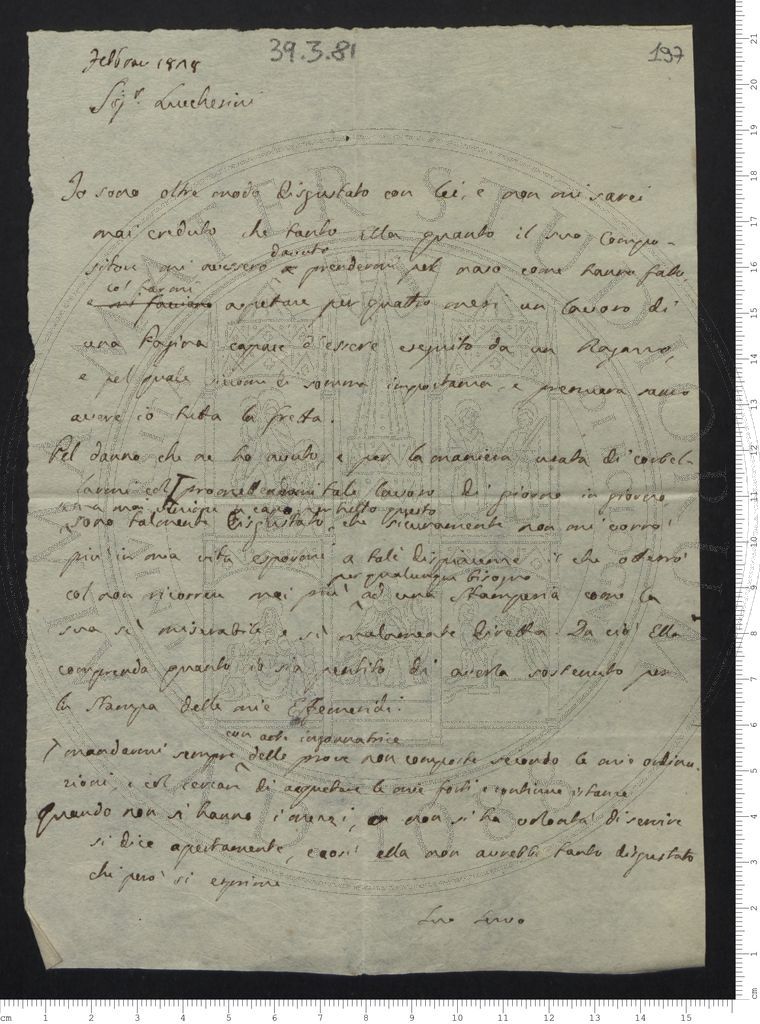 39.3.81
197
Febbraio 1818
Sigr. Lucchesini
Io sono oltre modo disgustato con lei, e non mi sarei
mai creduto che tanto ella quanto il suo Compo-
sitore mi avessero dovuto prendermi pel naso come hanno fatto,
co' farmi
e mi faciano aspettare per quattro mesi un lavoro di
una Pagina capace d'essere eseguito da un Ragazzo,
e pel quale siccome di somma importanza, e premura
avere io tutta la fretta.
Pel danno che ne ho avuto, e per la maniera usata di corbel-
larmi col promettermi tale lavoro di giorno in giorno
sono talmente disgustato, che sicuramente non mi
più in mia vita espormi a tale dispiacenze il che otterrò
per qualunque bisogno
col non ricorrere mai più ad una Stamperia come la
sua sì miserabile, e sì malamente diretta. Da ciò Ella
comprenda quanto io sia pentito di averla sostenuto per
la stampa delle mie Effemeridi.
con arte ingannatrice
mandarmi sempre delle prove non composte secondo le mie ordina-
zioni, e col cercar di acquetare le mie forti e continue istanze
Quando non si hanno i mezzi, o non si ha volontà di servire
si dice apertamente, e così ella non avrebbe tanto disgustato
chi però si esprime
Suo Servo